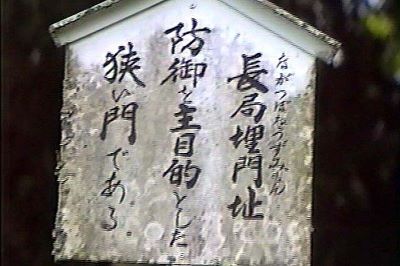 長局埋門址
ながつぼねうずみもん
防御を主目的とした
狭い門である